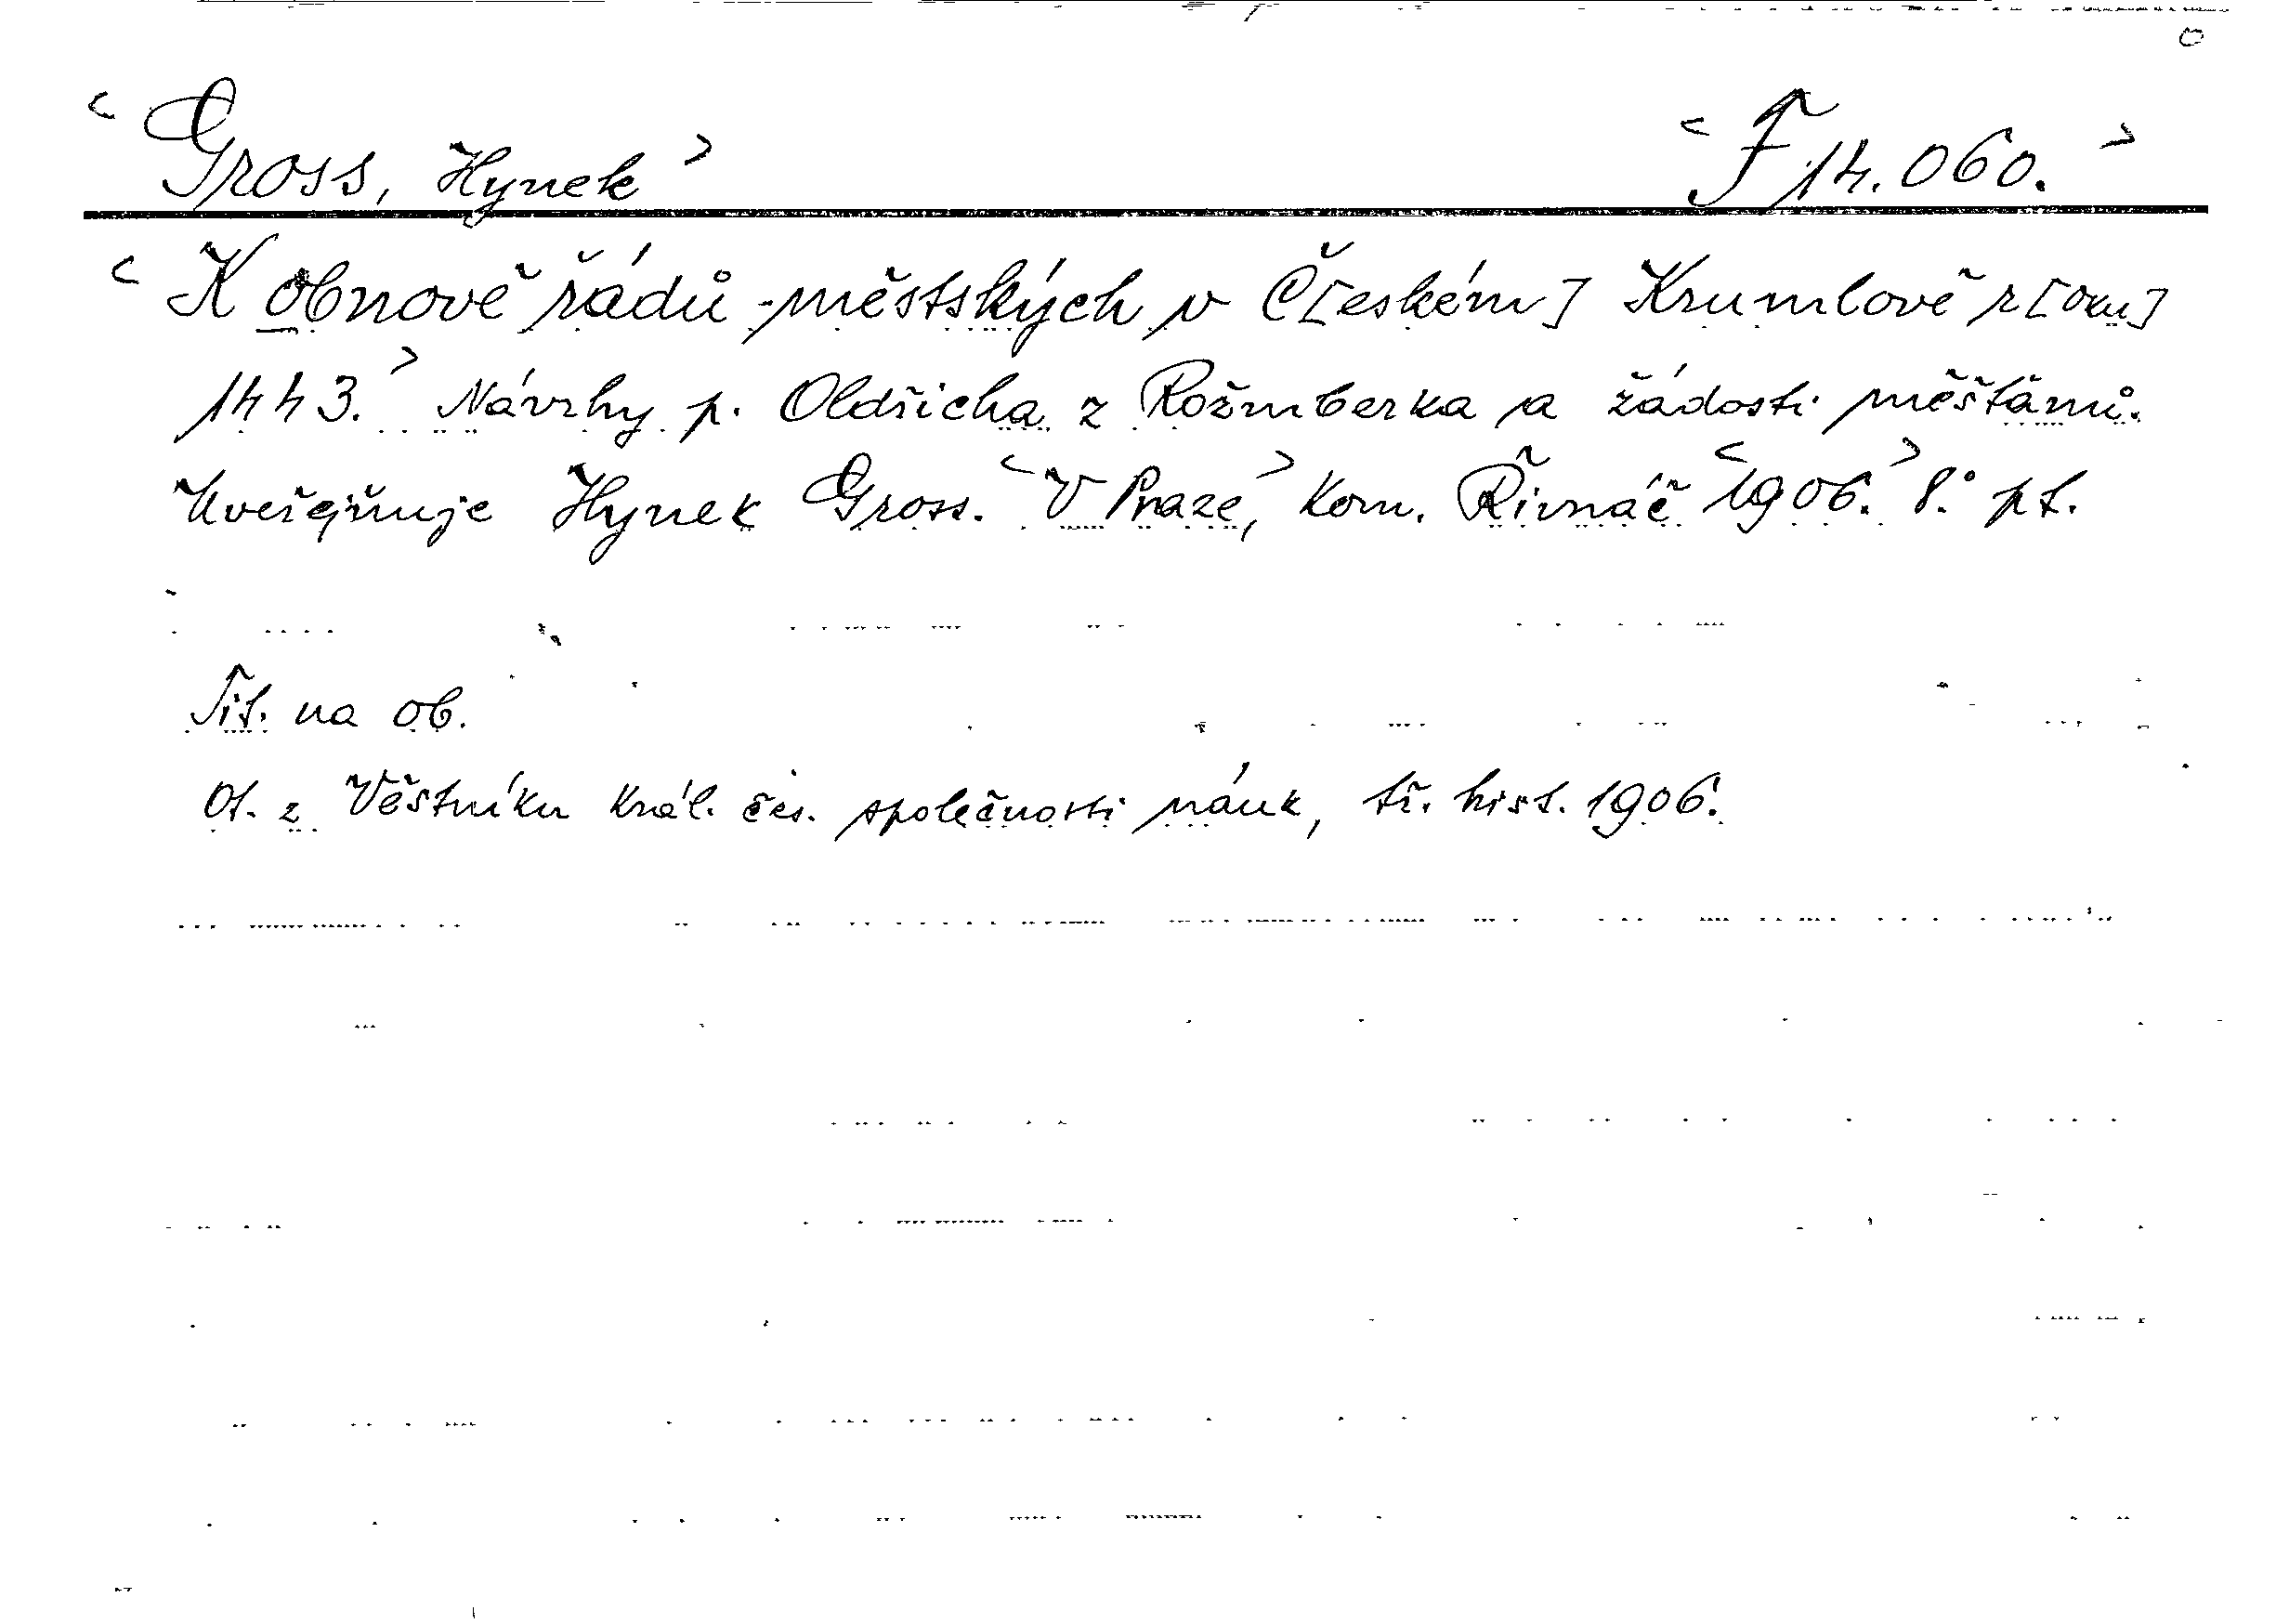 < Gross, Hynek > < F 14.060. >
< K obnově řádů městských v Č[eském] Krumlově r[oku]
1443. > Návrhy p. Oldřicha z Rožmberka a žádosti měšťanů.
Uveřejňuje Hynek Gross. < V Praze, > kom. Řivnáč < 1906. > 8.° pt.
Tit. na ob.
Ot. z Věstníku král. čes. společnosti náuk, tř. hist. 1906.